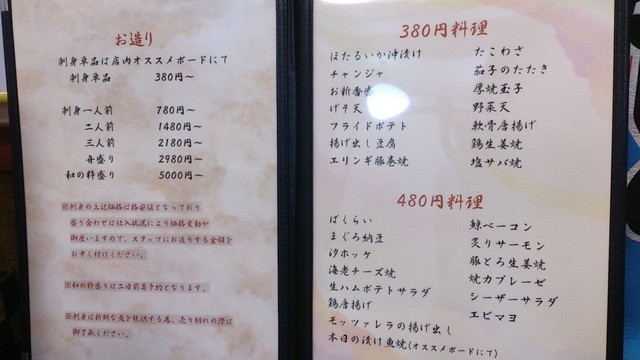 お造り
刺身単品は店内オススメボードにて
刺身単品 380円～
刺身一人前 780円～
二人前 1480円～
三人前 2180円～
舟盛り 2980円～
和の粋盛り 5000円～
※刺身の上記価格は格安値となっており
盛り合わせは仕入状況により価格変動が
御座いますので、スタッフにお造りする金額を
お申し付けください。
※和の粋盛りは二日前要予約となります。
※刺身は新鮮な魚を提供する為、売り切れの際は
御了承ください。
380円料理
ほたるいか沖漬け
チャンジャ
お新香盛
げそ天
フライドポテト
揚げ出し豆腐
エリンギ豚巻焼
たこわさ
茄子のたたき
厚焼玉子
野菜天
軟骨唐揚げ
鶏生姜焼
塩サバ焼
480円料理
ばくらい
まぐろ納豆
汐ホッケ
海老チーズ焼
生ハムポテトサラダ
鶏唐揚げ
モッツァレラの揚げ出し
本日の漬け魚焼(オススメボードにて)
鯨ベーコン
炙りサーモン
豚とろ生姜焼
焼カプレーゼ
シーザーサラダ
エビマヨ